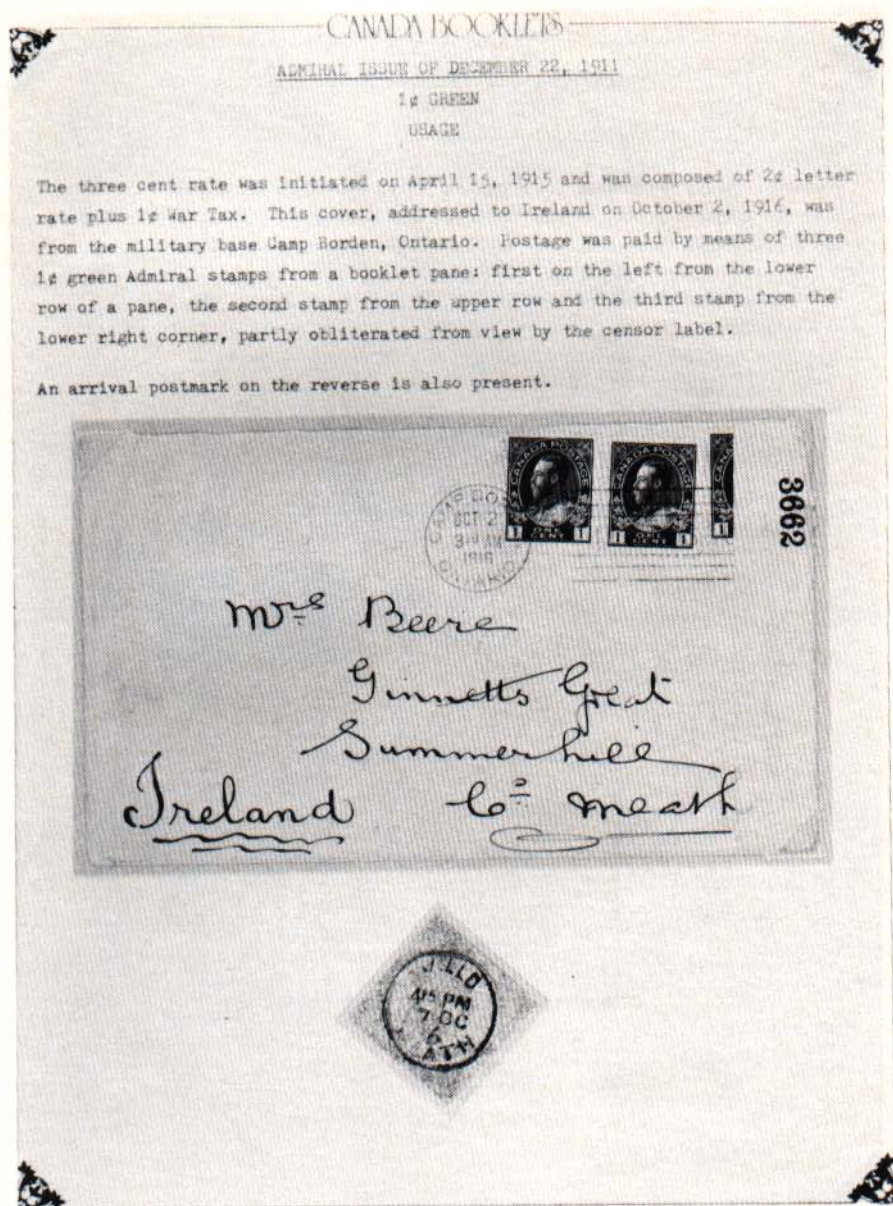 CANADA BOOKLETS
ADMIRAL ISSUE OF DECEMBER 22, 1911
1¢ GREEN
USAGE
The three cent rate was initiated on April 15, 1915 and was composed of 2¢ letter
rate plus 1¢ War Tax. This cover, addressed to Ireland on October 2, 1916, was
from the military base Camp Borden, Ontario. Postage was paid by means of three
1¢ green Admiral stamps from a booklet pane: first on the left from the lower
row of a pane, the second stamp from the upper row and the third stamp from the
lower right corner, partly obliterated from view by the censor label.
An arrival postmark on the reverse is also present.
CANADA POSTAGE
1 ONE CENT 1
CANADA POSTAGE
1 ONE CENT 1
1
3662
CAMP BO
OCT 2
AM
1916
ONTARIO
Mrs Beere
Ginnetts Great
Summerhill
Ireland Co Meath
PM
7 OC
6
EATH